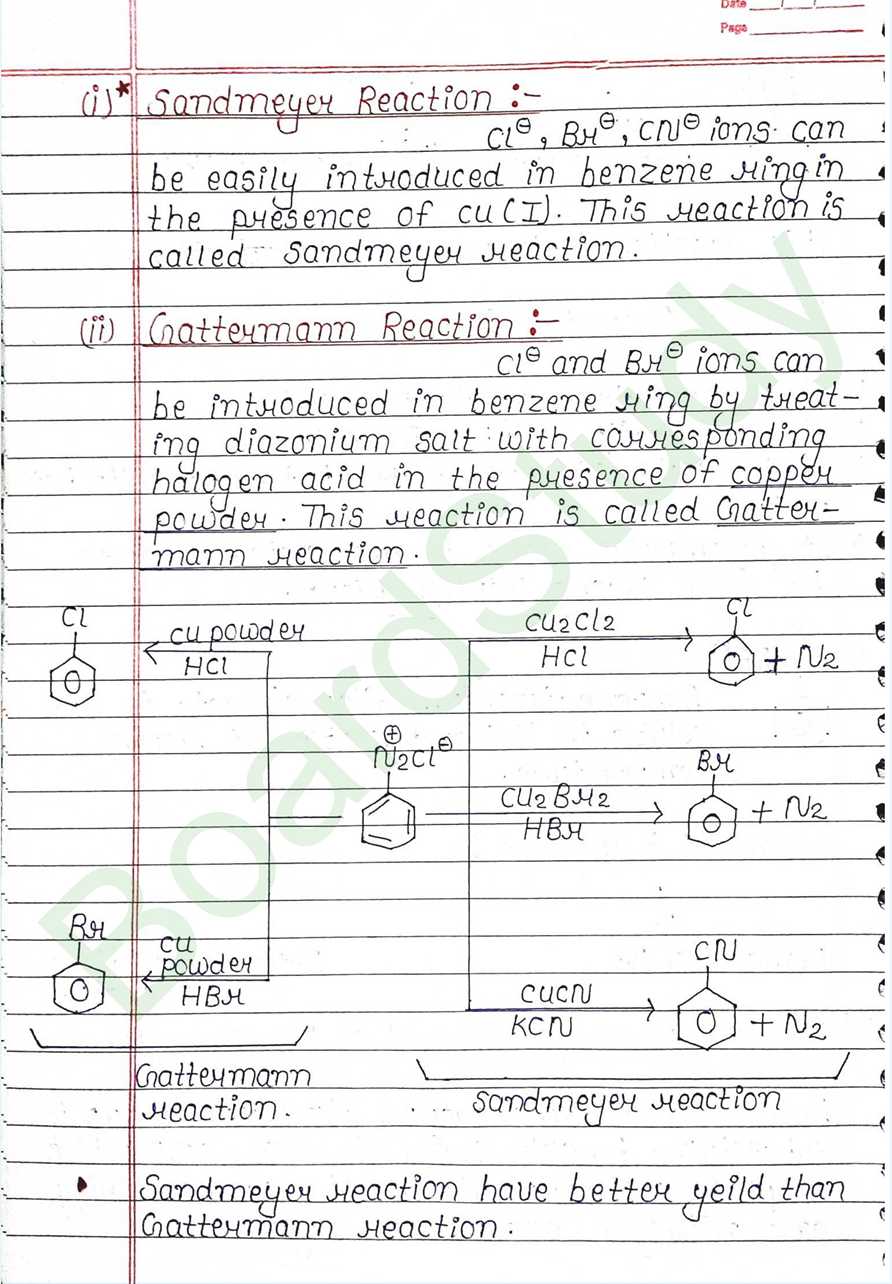 Date __/__/__
Page ______
(i)* Sandmeyer Reaction :-
Cl⊖, Br⊖, CN⊖ ions can
be easily introduced in benzene ring in
the presence of cu(I). This reaction is
called Sandmeyer reaction.
(ii) Gattermann Reaction :-
Cl⊖ and Br⊖ ions can
be introduced in benzene ring by treat-
ing diazonium salt with corresponding
halogen acid in the presence of copper
powder. This reaction is called Gatter-
mann reaction.
Cl
cu powder
HCl
Cu2Cl2
HCl
Cl
+ N2
⊕
N2Cl⊖
Cu2Br2
HBr
Br
+ N2
Br
cu
powder
HBr
CuCN
KCN
CN
+ N2
Gattermann
reaction.
Sandmeyer reaction
• Sandmeyer reaction have better yeild than
Gattermann reaction.
BoardStudy